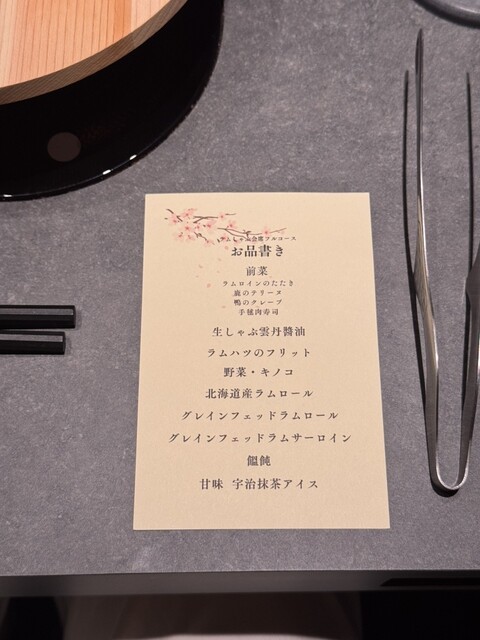 ラムしゃぶ会席フルコース
お品書き
前菜
ラムロインのたたき
鹿のテリーヌ
鴨のクレープ
手毬肉寿司
生しゃぶ雲丹醬油
ラムハツのフリット
野菜・キノコ
北海道産ラムロール
グレインフェッドラムロール
グレインフェッドラムサーロイン
饂飩
甘味 宇治抹茶アイス